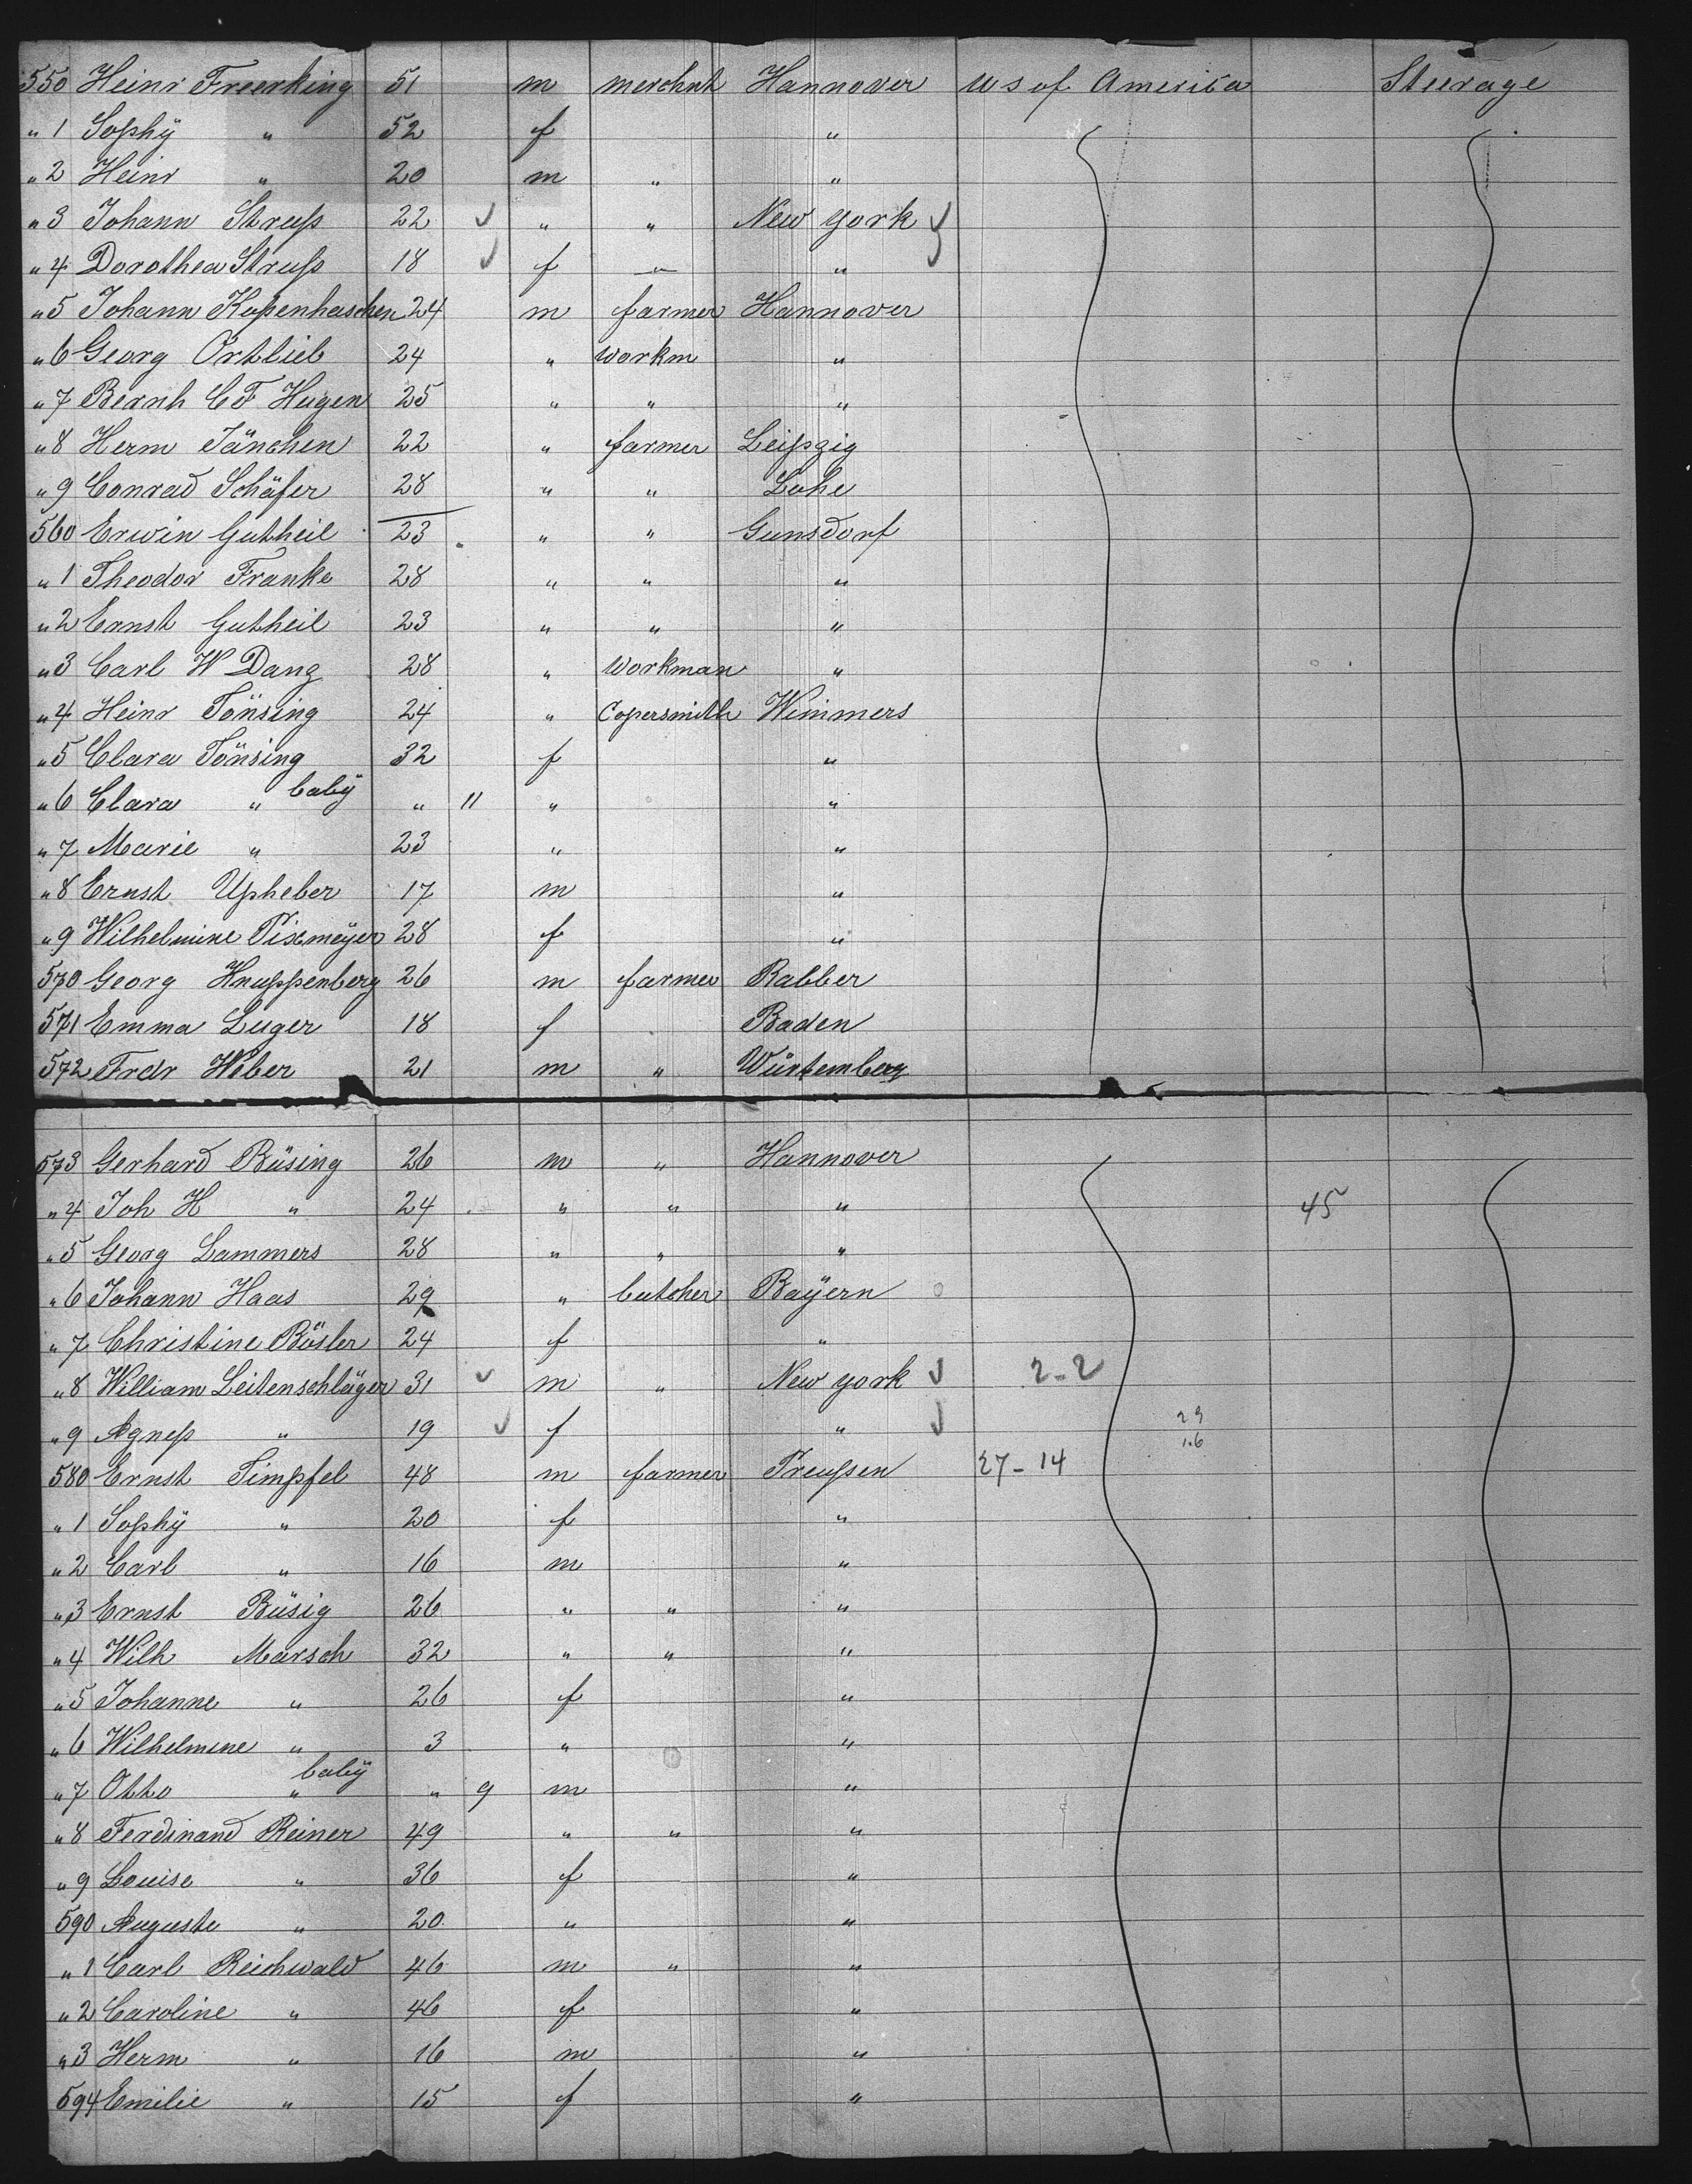 550 Heinr Freerking 51 m merchnt Hannover U S of America Steerage
" 1 Sophÿ " 52 f "
" 2 Heinr " 20 m " "
" 3 Johann Struß 22 " " New York
" 4 Dorothea Struß 18 f " "
" 5 Johann Kopenhaschen 24 m farmer Hannover
" 6 Georg Ortlieb 24 " workm "
" 7 Bernh C F Hugen 25 " " "
" 8 Herm Jänchen 22 " farmer Leipzig
" 9 Conrad Schäfer 28 " " Lohe
560 Erwin Gutheil 23 " " Gunsdorf
" 1 Theodor Franke 28 " " "
" 2 Ernst Gutheil 23 " " "
" 3 Carl W Dang 28 " Workman "
" 4 Heinr Tönsing 24 " Copersmith Wimmers
" 5 Clara Tönsing 32 f "
" 6 Clara " babÿ " 11 " "
" 7 Marie " 23 " "
" 8 Ernst Upheber 17 m "
" 9 Wilhelmine 28 f "
570 Georg Knuppenberg 26 m farmer Rabber
571 Emma Luger 18 f Baden
572 Frdr Weber 21 m " Würtemberg
573 Gerhard Büsing 26 m " Hannover
" 4 Joh H " 24 " " " 45
" 5 Georg Lammers 28 " " "
" 6 Johann Haas 29 " butcher Bayern
" 7 Christine Bösler 24 f "
" 8 William Leitenschläger 31 m " New York 2-2
" 9 Agneß " 19 f " 29
16
580 Ernst Timpfel 48 m farmer Preußen 27-14
" 1 Sophÿ " 20 f "
" 2 Carl " 16 m "
" 3 Ernst Büsig 26 " " "
" 4 Wilh Marsch 32 " " "
" 5 Johanne " 26 f "
" 6 Wilhelmine " 3 " "
" 7 Otto " babÿ " 9 m "
" 8 Ferdinand Reiner 49 " " "
" 9 Louise " 36 f "
590 Auguste " 20 " "
" 1 Carl Reichwald 46 m " "
" 2 Caroline " 46 f "
" 3 Herm " 16 m "
594 Emilie " 15 f "